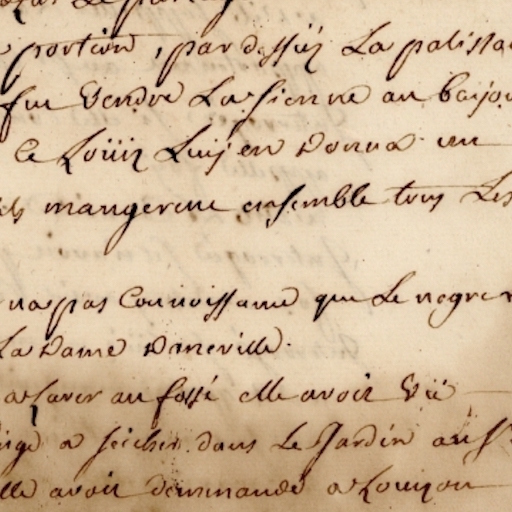 portion, par dessus La palissa
fut Vendre La sienne au bajou
Ce Loüis Luy en Donna un
ils mangerent ensemble tous Les
na pas Connoissance que Le negre
La Dame Daneville.
a Laver au fossé elle avoit Vü
linge a seicher dans Le Jardin au Sr
elle avoit demmandé a Louison